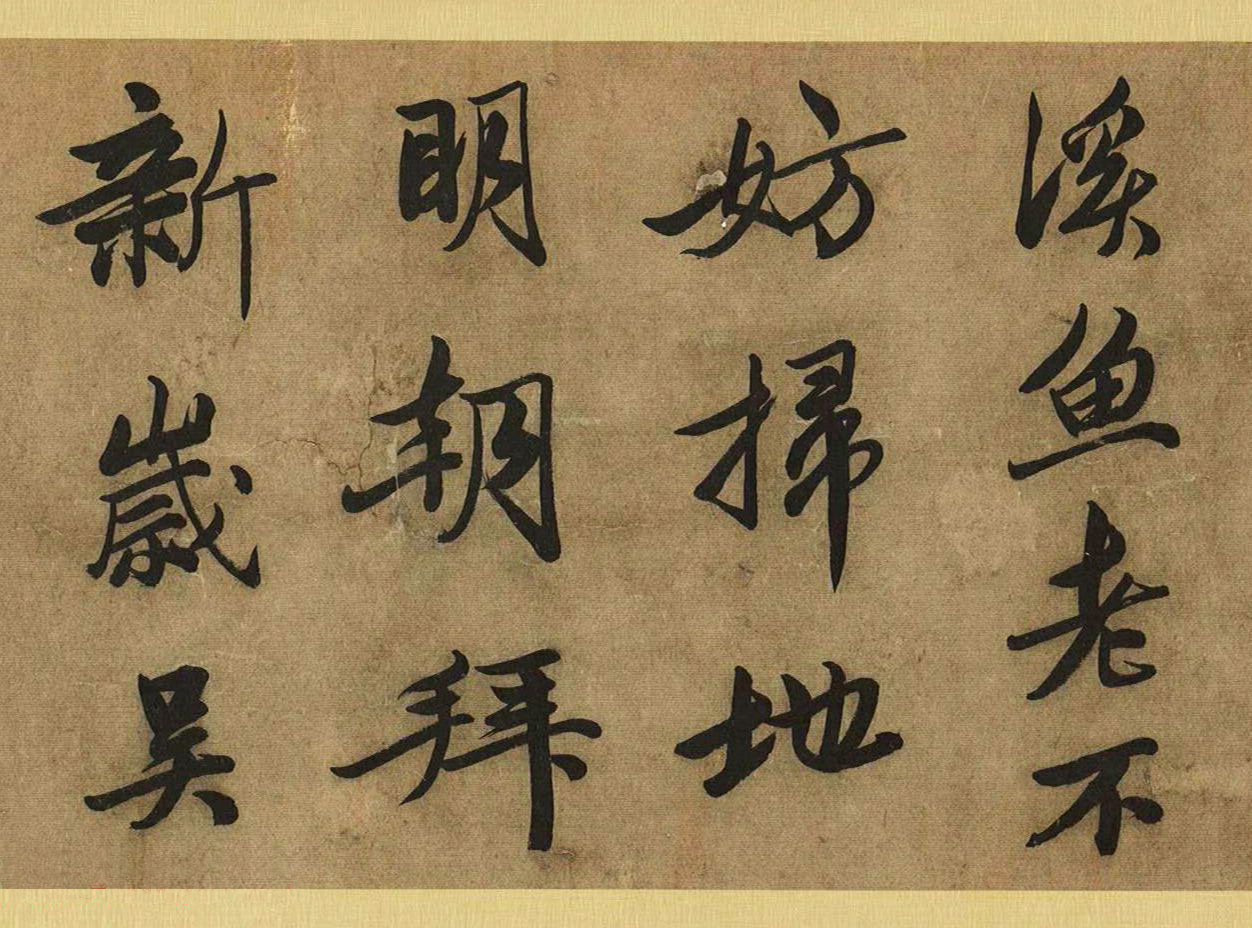 溪鱼老不
妨掃地
明朝拜
新歲吴